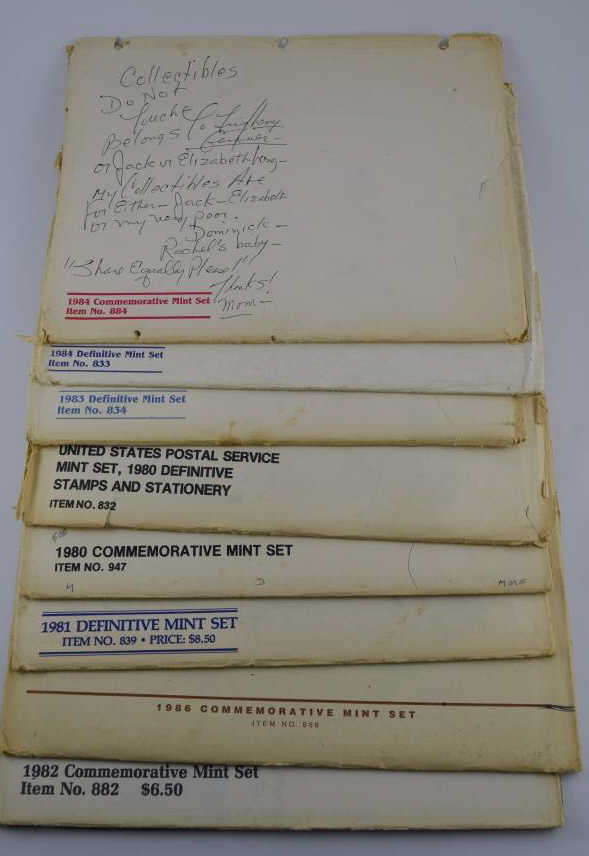 Collectibles
Do Not
Touche
Belongs To
or Jack or Elizabeth
My Collectibles Are
for Either - Jack - Elizabeth
or my very poor.
Dominick -
Rachel's baby -
"Share Equally Please!"
Thanks!
Mom -
1984 Commemorative Mint Set
Item No. 884
1984 Definitive Mint Set
Item No. 833
1983 Definitive Mint Set
Item No. 834
UNITED STATES POSTAL SERVICE
MINT SET, 1980 DEFINITIVE
STAMPS AND STATIONERY
ITEM NO. 832
1980 COMMEMORATIVE MINT SET
ITEM NO. 947
MORE
1981 DEFINITIVE MINT SET
ITEM NO. 839 • PRICE: $8.50
1986 COMMEMORATIVE MINT SET
ITEM NO.
1982 Commemorative Mint Set
Item No. 882 $6.50